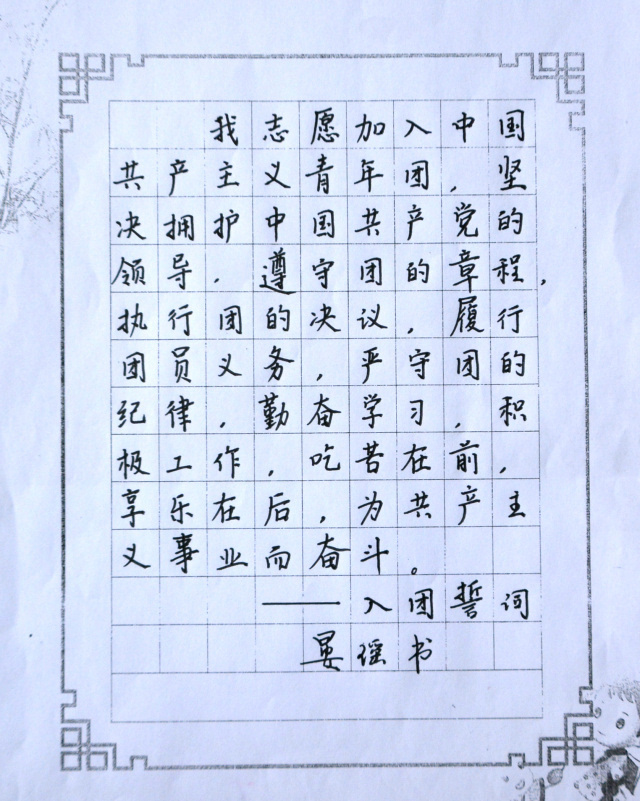 我志愿加入中国
共产主义青年团，坚
决拥护中国共产党的
领导，遵守团的章程，
执行团的决议，履行
团员义务，严守团的
纪律，勤奋学习，积
极工作，吃苦在前，
享乐在后，为共产主
义事业而奋斗。
——入团誓词
晏瑶书